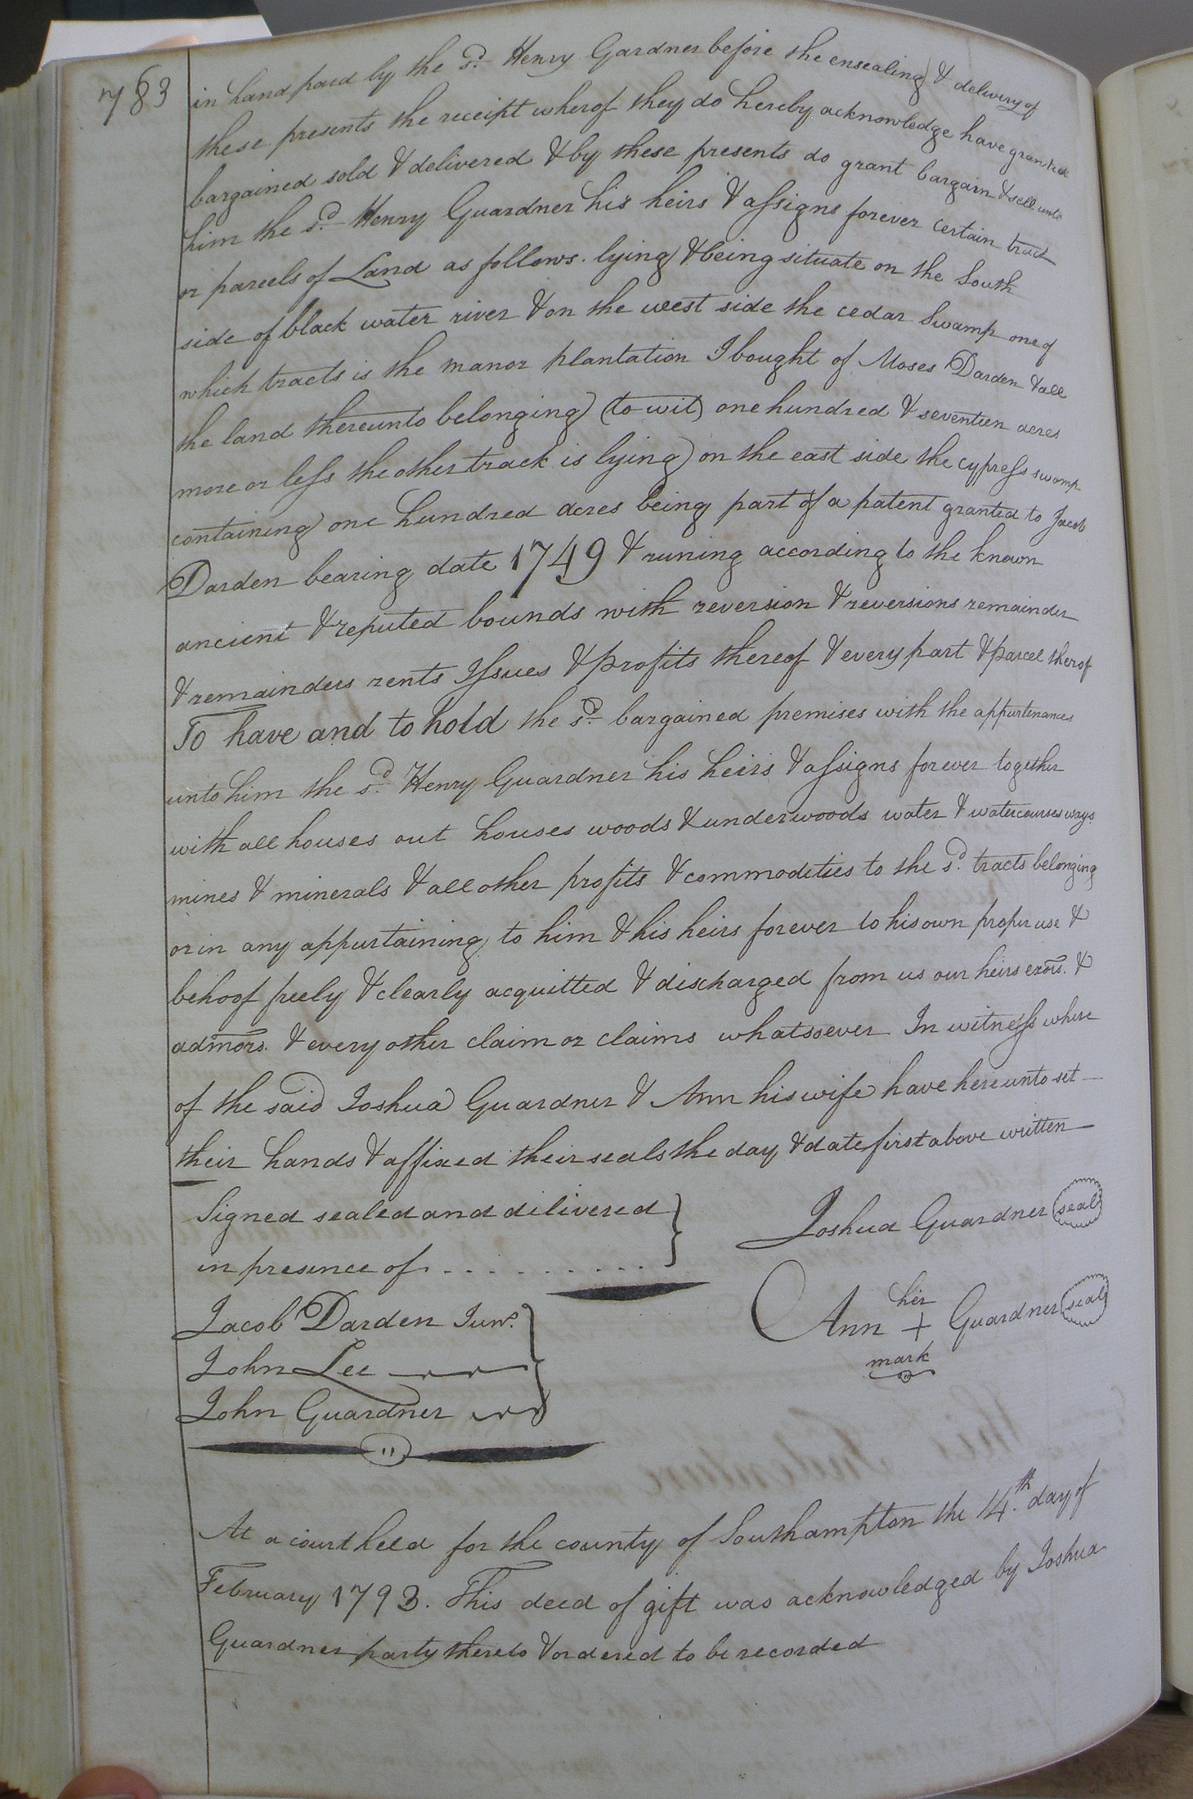 783
in hand paid by the sd. Henry Gardner before the ensealing & delivery of
these presents the receipt wherof they do hereby acknowledge have granted
bargained sold & delivered & by these presents do grant bargain & sell unto
him the sd. Henry Guardner his heirs & assigns forever certain tract
or parcels of Land as follows. lying & being situate on the South
side of black water river & on the west side the cedar Swamp one of
which tracts is the manor plantation I bought of Moses Darden & all
the land thereunto belonging (to wit) one hundred & seventeen acres
more or less the other track is lying on the east side the cypress swamp
containing one hundred acres being part of a patent granted to Jacob
Darden bearing date 1749 & runing according to the known
ancient & reputed bounds with reversion & reversions remainder
& remainders rents Issues & profits thereof & every part & parcel therof
To have and to hold the sd. bargained premises with the appurtenances
unto him the sd. Henry Guardner his heirs & assigns forever together
with all houses out houses woods & underwoods water & watercourses ways
mines & minerals & all other profits & commodities to the sd. tracts belonging
or in any appurtaining to him & his heirs forever to his own proper use &
behoof freely & clearly acquitted & discharged from us our heirs exors. &
admors. & every other claim or claims whatsoever In witness where
of the said Joshua Guardner & Ann his wife have hereunto set
their hands & affixed their seals the day & date first above written
Signed sealed and delivered
in presence of . . . . . . . . . .
Joshua Guardner seal
Jacob Darden Junr.
John Lee
John Guardner
her
Ann + Guardner seal
mark
At a court held for the county of Southampton the 14.th day of
February 1793. This deed of gift was acknowledged by Joshua
Guardner party thereto & ordered to be recorded